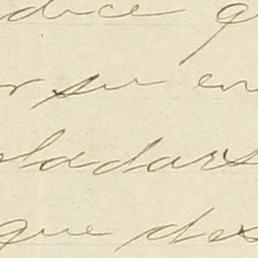 dice q
r su en
ladars
que des